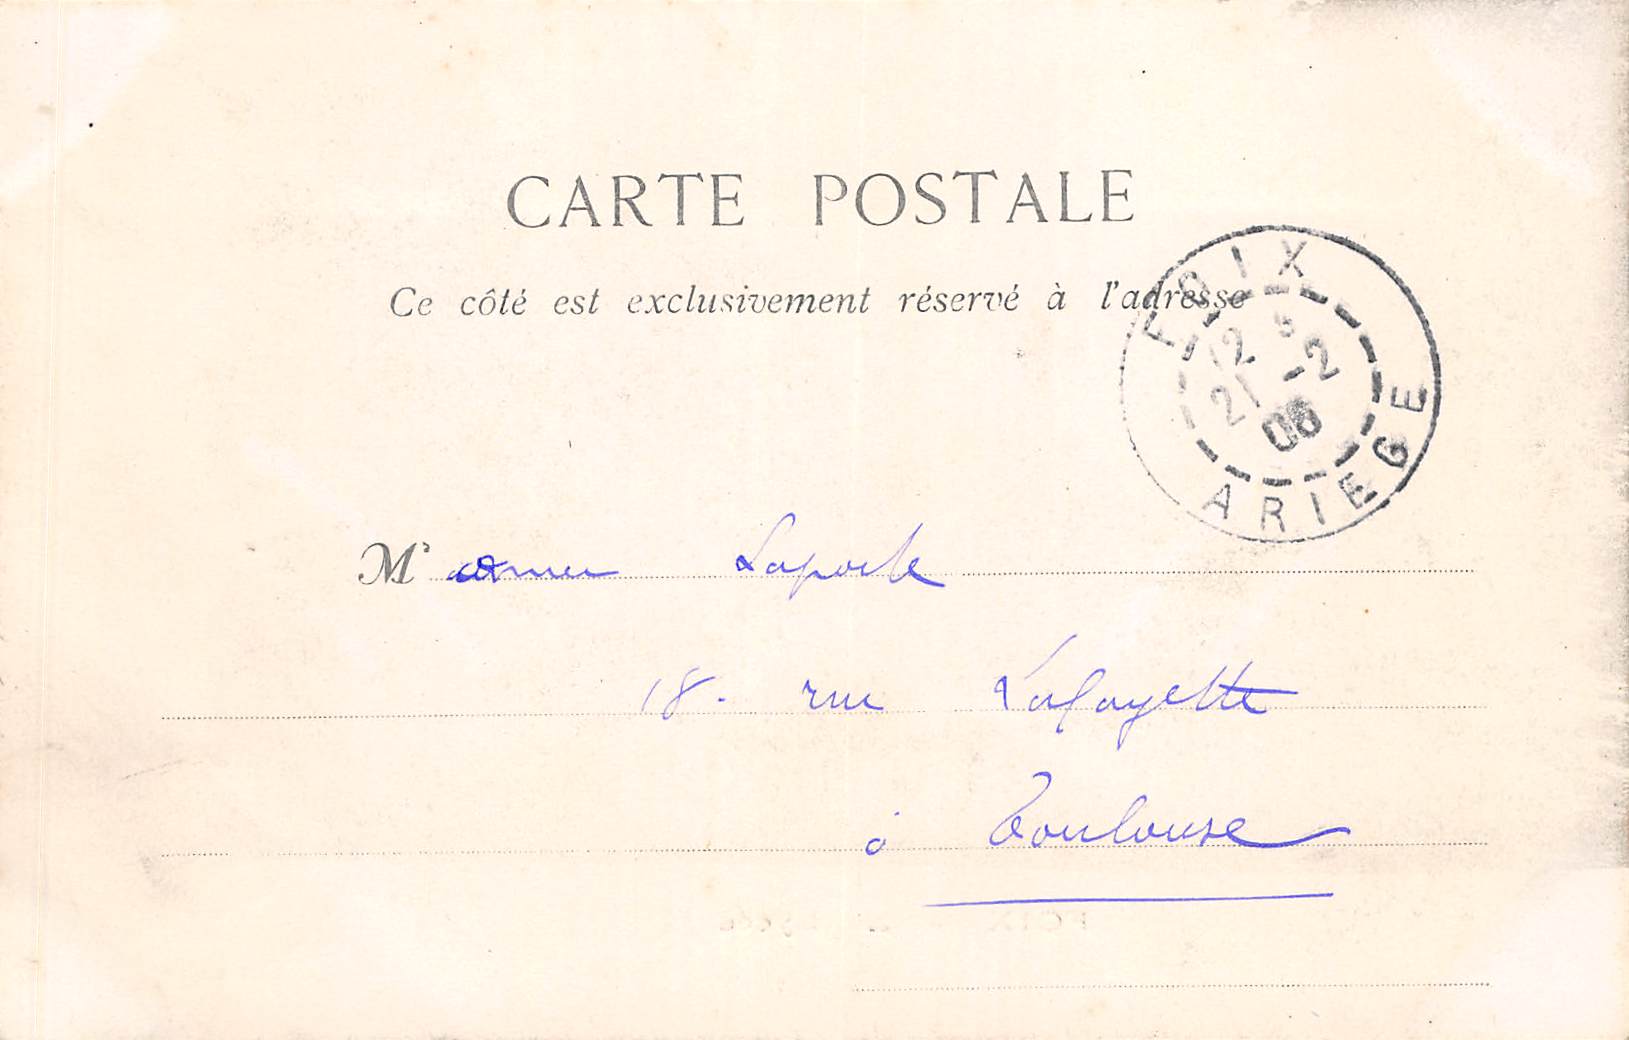 CARTE POSTALE
Ce côté est exclusivement réservé à l'adresse
FOIX
12
21 -2
06
ARIEGE
M Laporte
18. rue Lafayette
à Toulouse